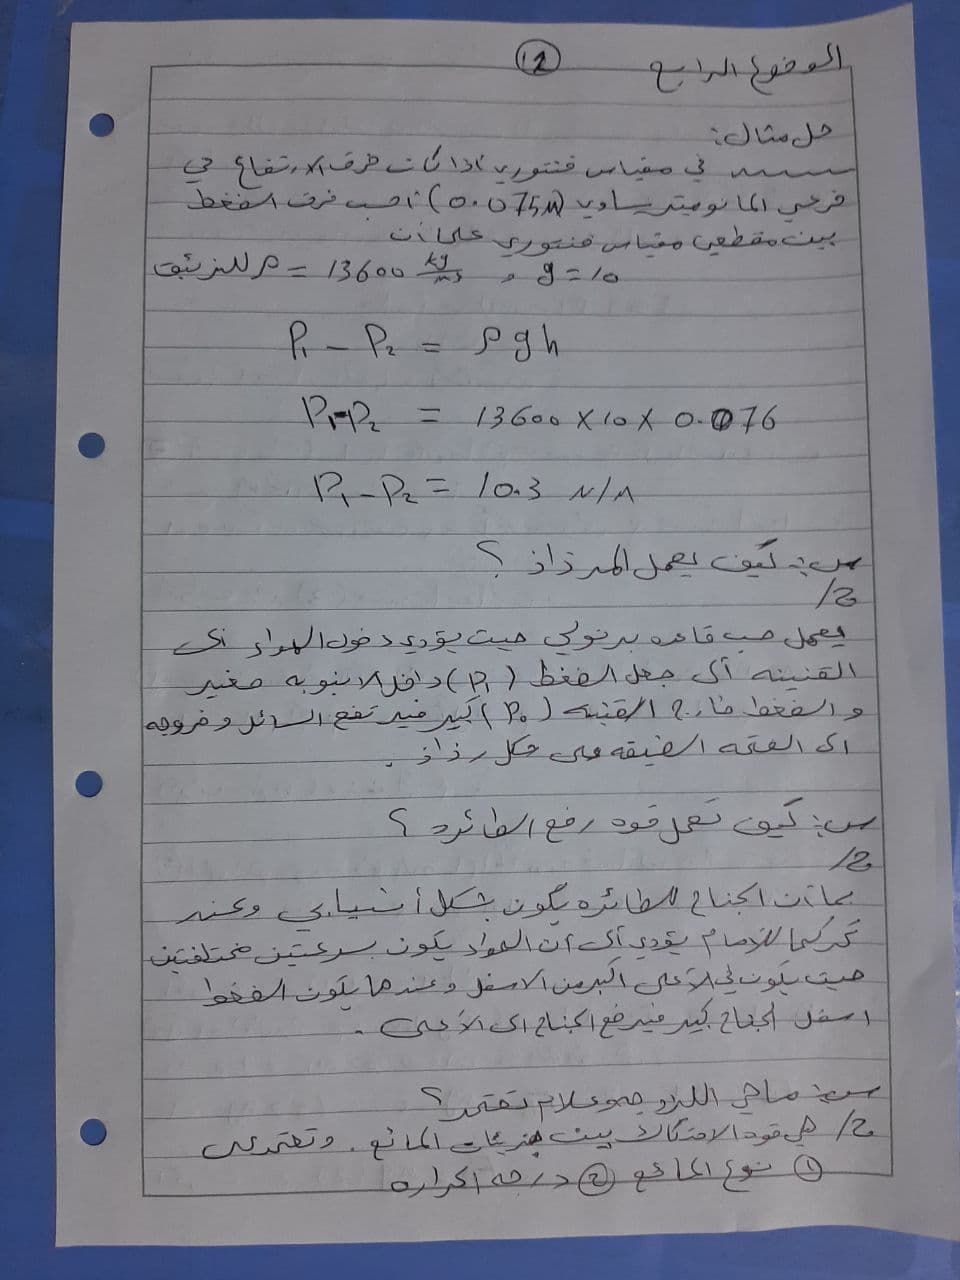 الموضوع الرابع
12
حل مثال:
في مقياس فنتوري اذا كانت فرق الارتفاع في
فرعي المانومتر يساوي (0.075M) احسب فرق الضغط
بين مقطعي مقياس فنتوري علما أن
ρ = 13600 kg/m3 للزئبق , g = 10
P1 - P2 = ρgh
P1-P2 = 13600 X 10 X 0.076
P1 - P2 = 10.3 N/M
س:- كيف يعمل المرذاذ ؟
ج/
يعمل حسب قاعده برنولي حيث يؤدي دخول الهواء الى
القنينه أى جعل الضغط (P1) داخل الانبوبه صغير
و الضغط خارج القنينه (P0) كبير فيرتفع السائل و خروجه
الى الفتحه الضيقه على شكل رذاذ .
س:- كيف تعمل قوه رفع الطائره ؟
ج/
بما أن الجناح للطائره يكون بشكل أنسيابي وعند
تحركها للأمام يؤدي أى أن الهواء يكون بسرعتين مختلفتين
حيث يكون في الأعلى اكبر من الاسفل وعندها يكون الضغط
اسفل الجناح كبير فيرفع الجناح الى الأعلى .
س:- ماهي اللزوجه وعلام تعتمد ؟
ج/ هي قوه الاحتكاك بين جزيئات المائع . وتعتمد على
① نوع المائع ② درجه الحراره